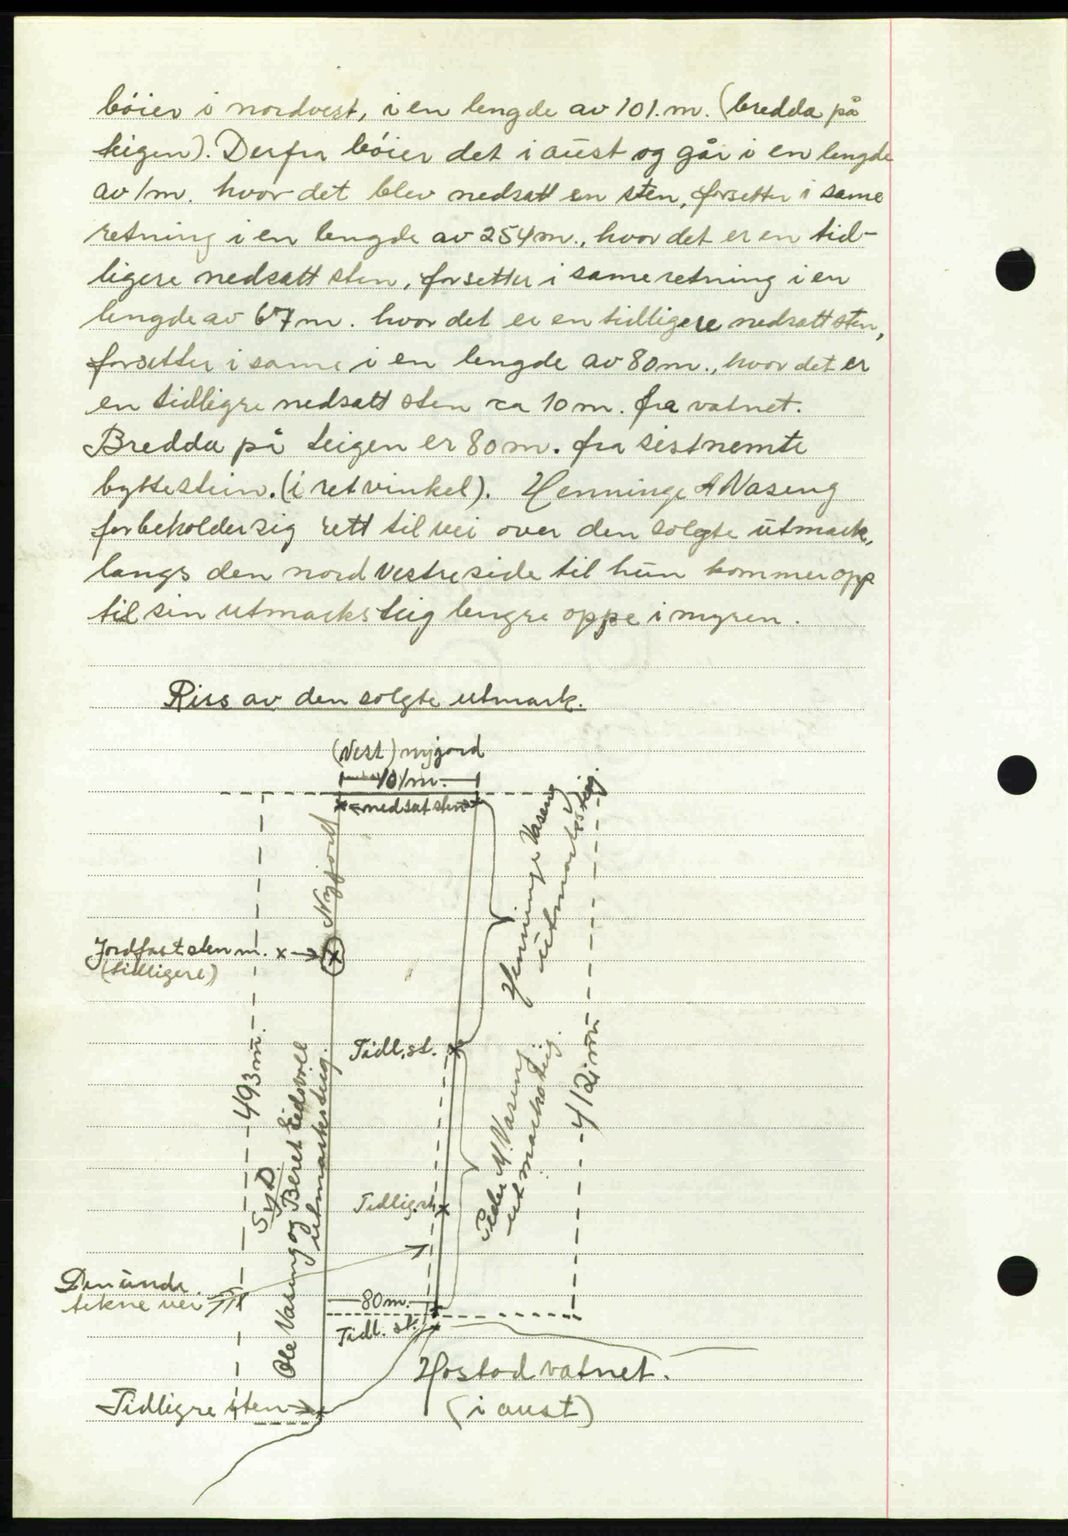 bóier i nordvest, i en lengde av 101.m. (bredda på
teigen). Derfra bóier det i aust og går i en lengde
av 1m. hvor det blev nedsatt en sten, forsetter i same
retning i en lengde av 254m., hvor det er en tid-
ligere nedsatt sten, forsetter i same retning i en
lengde av 67m. hvor det er en tidligere nedsatt sten,
forsetter i same i en lengde av 80m., hvor det er
en tidligre nedsatt sten ca 10m. fra vatnet.
Bredda på teigen er 80m. fra sistnemte
byttestein. (i ret vinkel). Henninge A Vaseng
forbeholder sig rett til vei over den solgte utmark,
langs den nordvestre side til hun kommer opp
til sin utmarksteig lengre oppe i myren.
Riss av den solgte utmark.
(Vest) nyjord
101m.
nedsat sten
Nyjord
Henninge Vaseng
utmarksteig
Jordfast sten m. x
(tidligere)
Tidl. st.
493m.
412m
Syd
Ole Vaseng og Beret Eidsvoll
utmarksteig.
Peder M. Vaseng
utmarksteig.
Tidlig. st.
Den unde
tekne vei
80m.
Tidl. st.
Hostad vatnet.
(i aust)
Tidligre sten